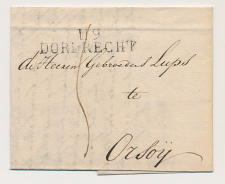 1/9
DORDRECHT
de Heeren Gebroeders Lups
te
Orsoÿ